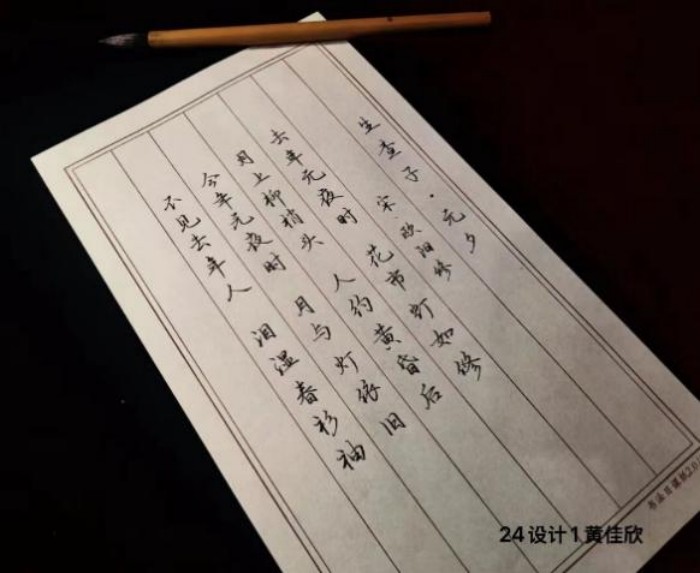 生查子·元夕
宋·欧阳修
去年元夜时 花市灯如修
月上柳梢头 人约黄昏后
今年元夜时 月与灯依旧
不见去年人 泪湿春衫袖
24设计1黄佳欣